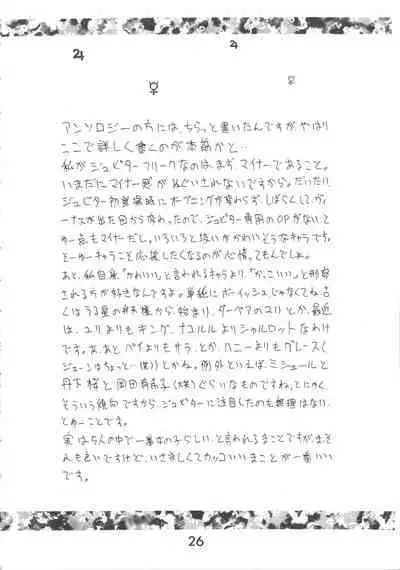 アンソロジーの方には、ちらっと書いたんですが、やはり
ここで詳しく書くのが本筋かと…
私がジュピターフリークなのは、まず、マイナーであること。
いまだにマイナー感がぬぐいきれないですから。だいたい!
ジュピター初登場時にオープニングが変わらず、しばらくして、ヴィ
ーナスが出た回から変わったので、ジュピター専用のOPがない、と
ゆー点もマイナーだし。いろいろと扱いがかわいそうなキャラです。
とーゆーキャラこそ応援したくなるのが心情ってもんでしょ。
あと、私自身「かわいい」と言われるキャラより「かっこいい」と形容
される方が好きなんですよ。単純にボーイッシュ、じゃなくてね。古
くはうる星の弁天様から始まり、ダーペアのユリとか、最近
は、ユリよりもキング、ナコルルよりシャルロットなわけ
です。あ、あとベイよりもサラ、とか、ハニーよりもグレース(
ジェーンはちょっと…(笑))とかね。例外といえば、ミシェールと
丹下桜と岡田有希子(笑)ぐらいなものですね。とにかく、
そういう傾向ですから、ジュピターに注目したのも無理はない、
とゆーことです。
実は5人の中で一番女の子らしい、と言われるまことですが、まぁそ
れも良いですけど、いさましくてカッコいいまことが一番いい
です。
26